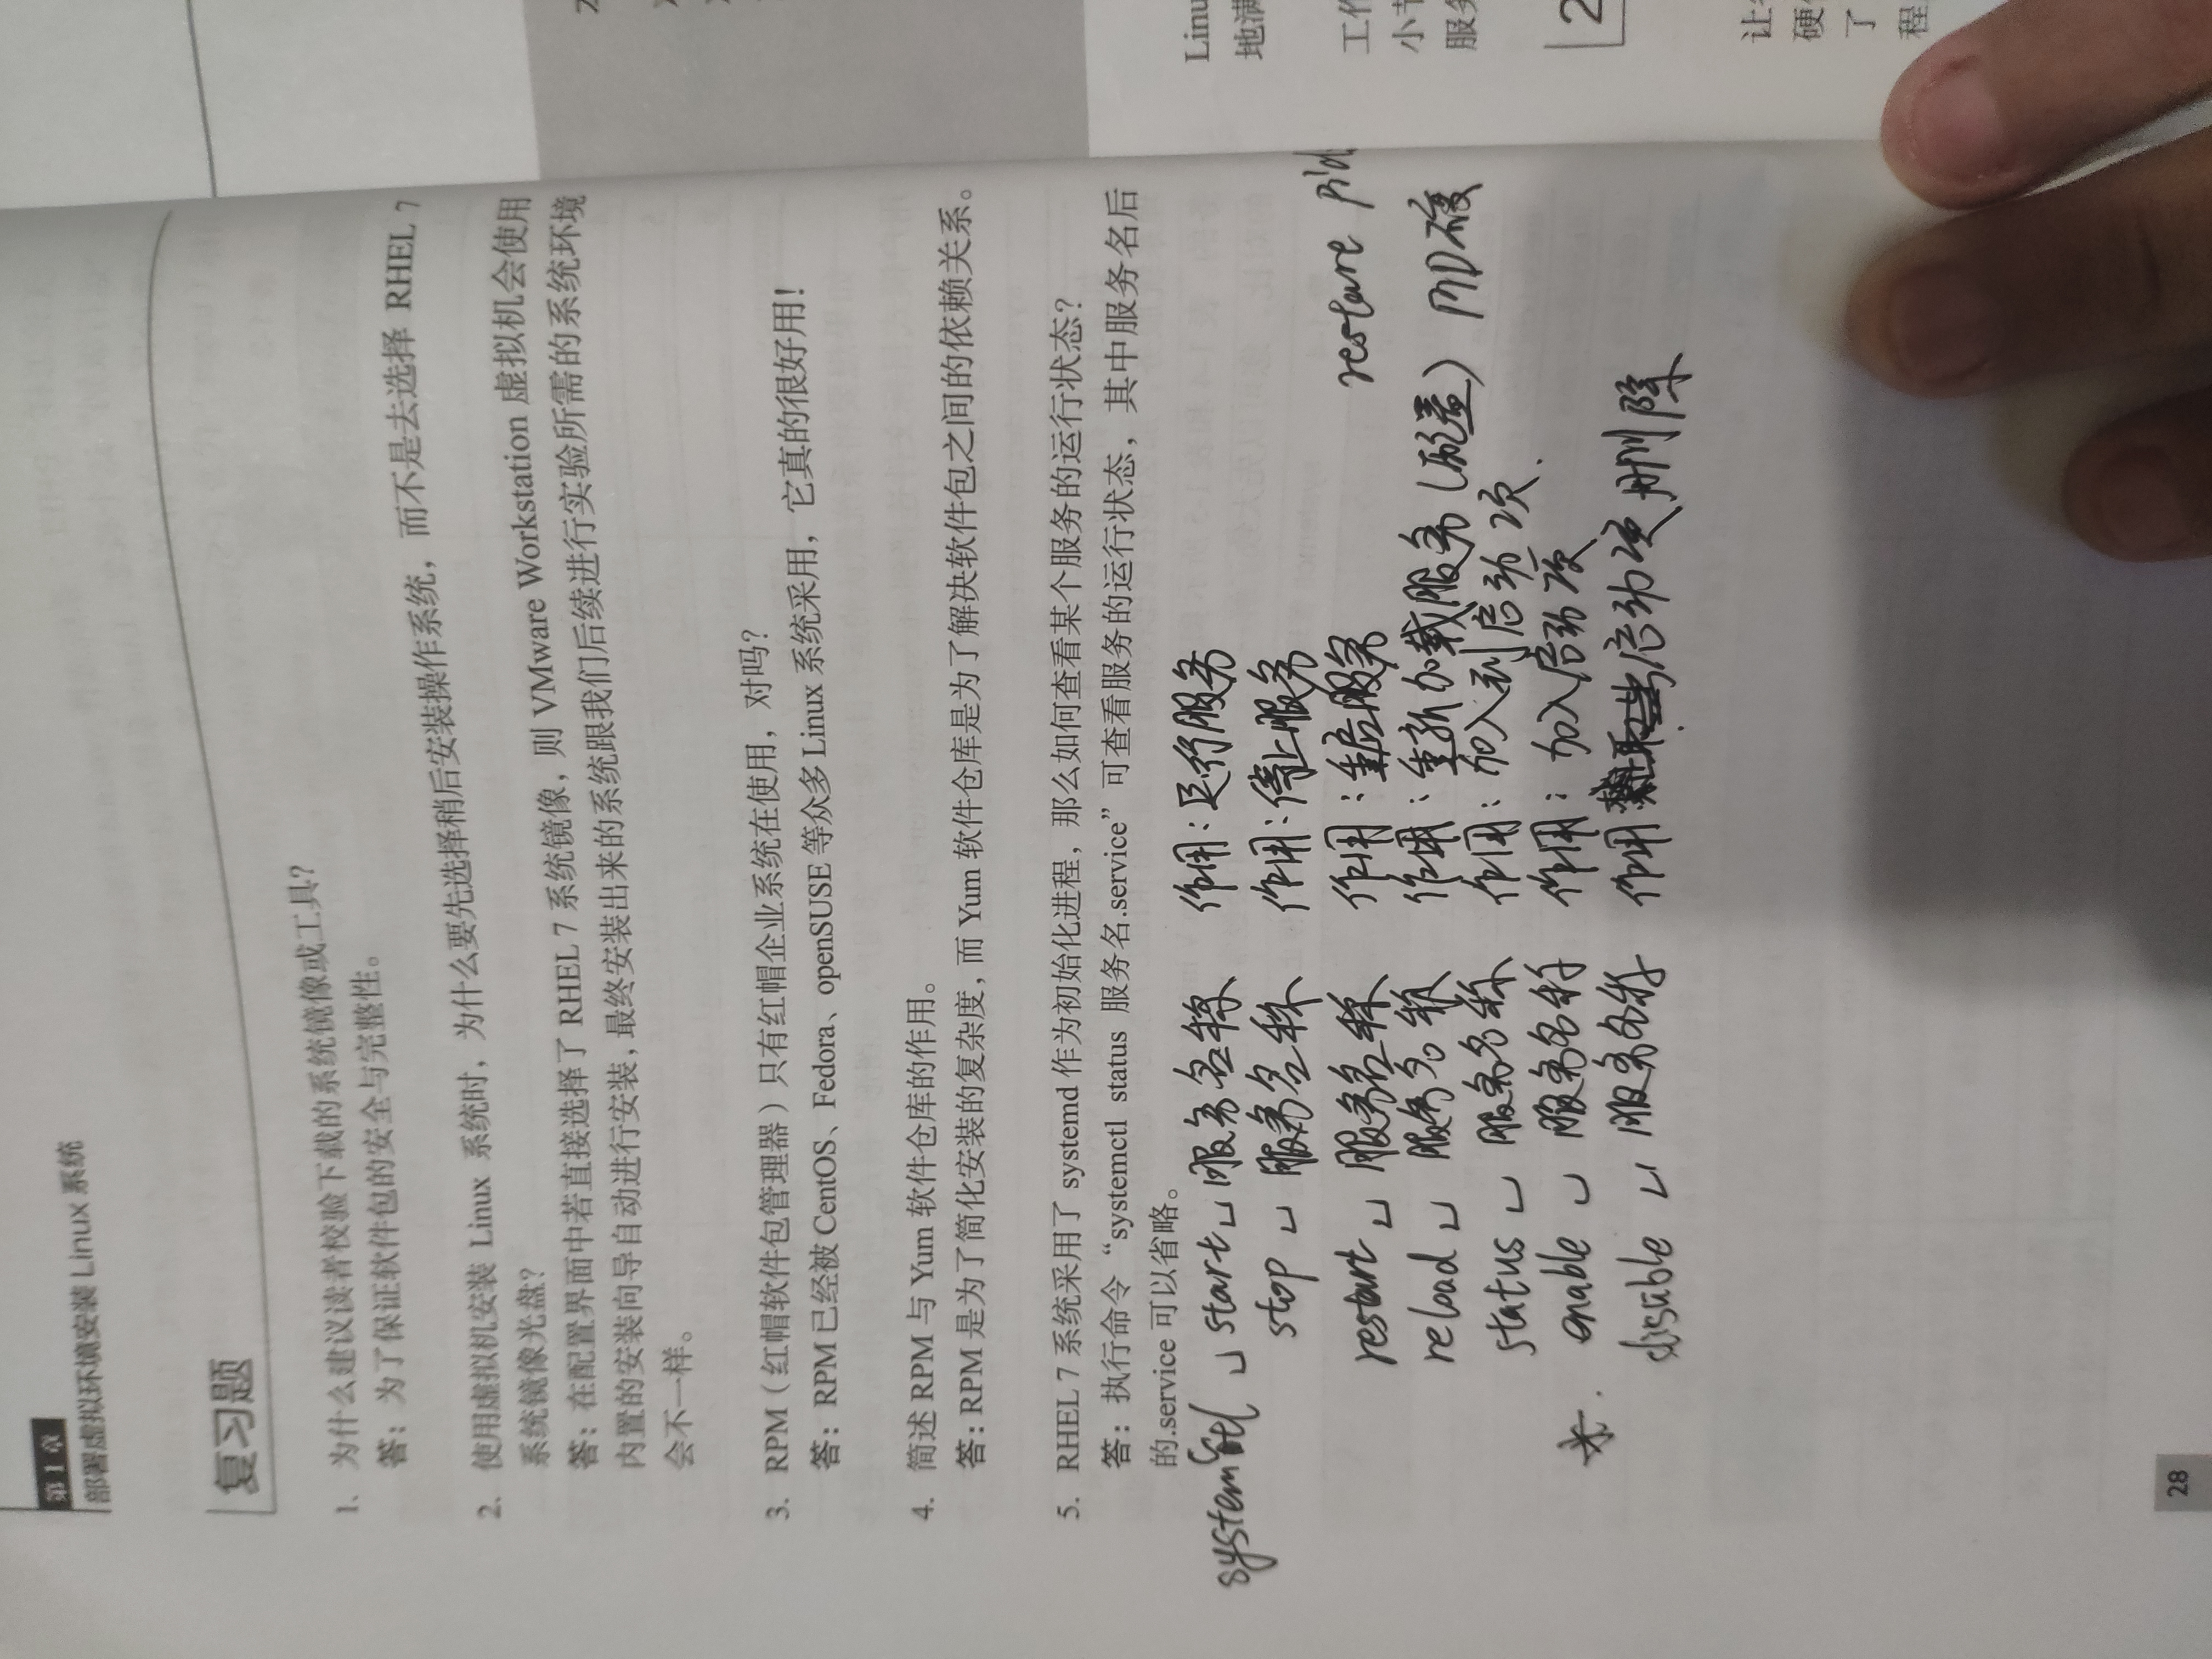 第1章
部署虚拟环境安装 Linux 系统
复习题
1. 为什么建议读者校验下载的系统镜像或工具?
答：为了保证软件包的安全与完整性。
2. 使用虚拟机安装 Linux 系统时，为什么要先选择稍后安装操作系统，而不是去选择 RHEL 7
系统镜像光盘?
答：在配置界面中若直接选择了 RHEL 7 系统镜像，则 VMware Workstation 虚拟机会使用
内置的安装向导自动进行安装，最终安装出来的系统跟我们后续进行实验所需的系统环境
会不一样。
3. RPM（红帽软件包管理器）只有红帽企业系统在使用，对吗?
答：RPM 已经被 CentOS、Fedora、openSUSE 等众多 Linux 系统采用，它真的很好用!
4. 简述 RPM 与 Yum 软件仓库的作用。
答：RPM 是为了简化安装的复杂度，而 Yum 软件仓库是为了解决软件包之间的依赖关系。
5. RHEL 7 系统采用了 systemd 作为初始化进程，那么如何查看某个服务的运行状态?
答：执行命令“systemctl status 服务名.service”可查看服务的运行状态，其中服务名后
的.service 可以省略。
systemctl ␣ start ␣ 服务名称 作用：运行服务
stop ␣ 服务名称 作用：停止服务
restart ␣ 服务名称 作用：重启服务 restare Pid
reload ␣ 服务名称 作用：重新加载服务（覆盖）PID不变
status ␣ 服务名称 作用：加入到启动项.
*. enable ␣ 服务名称 作用：加入启动项
disable ␣ 服务名称 作用 启动项删除
28
Linu
地满
工作
小节
服务
2
让
硬
了
程